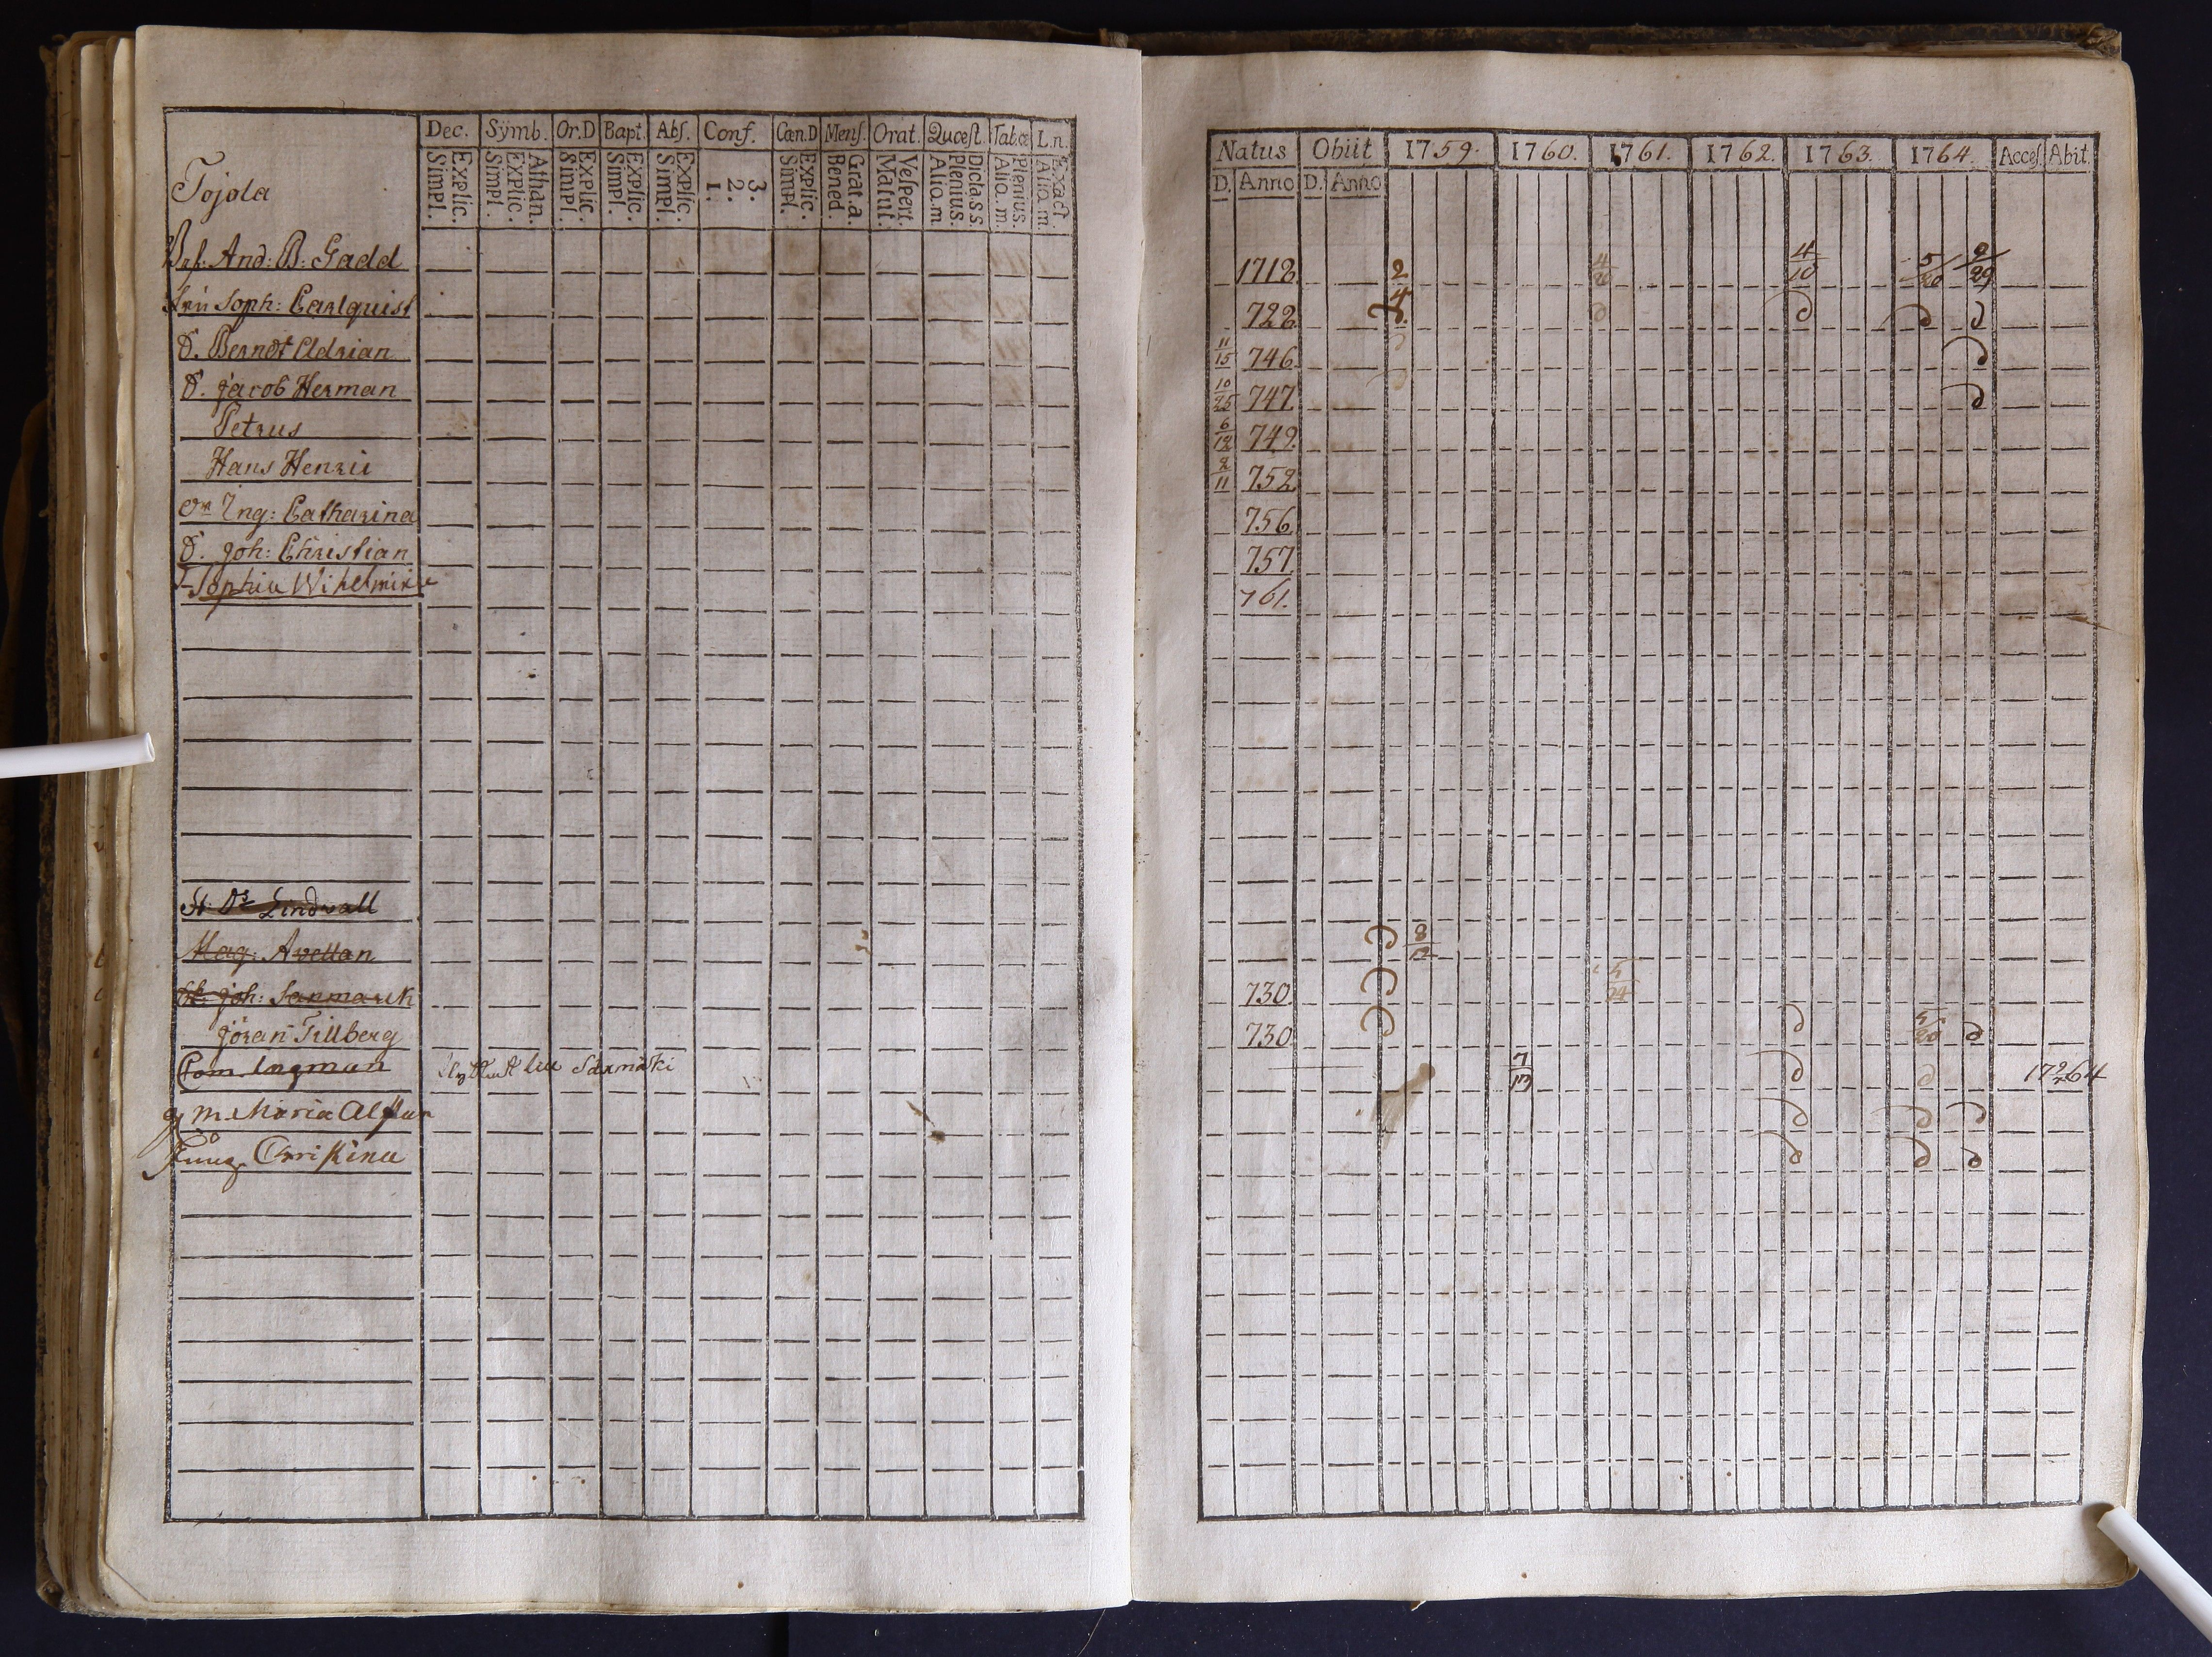 Dec. Sÿmb. Or.D Bapt. Abs. Conf. Cæn.D Mens. Orat. Quæst. Tab.œ L.n.
Simpl. Explic. Simpl. Explic. Athan. Simpl. Explic. Simpl. Explic. Simpl. Explic. 1. 2. 3. Simpl. Explic. Bened. Grat.a. Matut. Vespert. Aliq.m Plenius. Dicta.s.s. Aliq.m. Plenius. Aliq.m. Exact
Tojola
And: B: Gadd
Soph: Carlquist
d. Berndt Adrian
d. Jacob Herman
Petrus
Hans Henric
Ing: Catharina
d. Joh: Christian
Sophia Wilhelmina
St: Dr Lindwall
Mag: Avellan
St: Joh: Sanmark
Jöran Tillberg
Com. Ingman
m. Maria
Christina
Natus Obiit 1759. 1760. 1761. 1762. 1763. 1764. Acces. Abit.
D. Anno D. Anno
1718 2/4 4/10 5/20 9/29
722
11/15 746.
10/25 747
6/12 749.
2/11 752
756
757
761.
8/12
730.
730. 5/20
7/13 1764